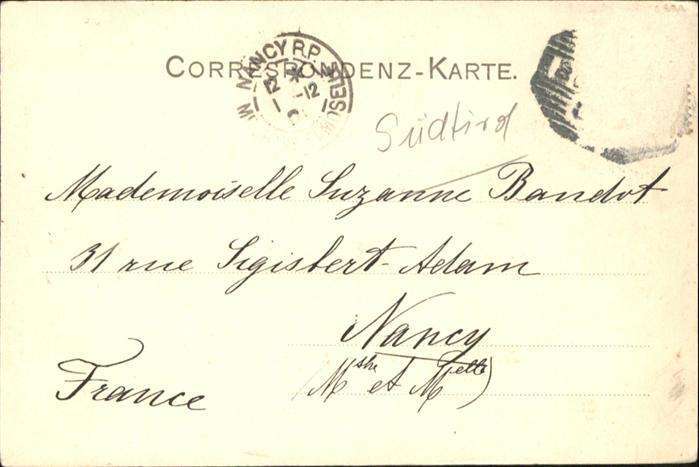 CORRESPONDENZ-KARTE.
NANCY R.P.
12 * 12
Südtirol
Mademoiselle Suzanne Bandot
31 rue Sigisbert-Adam
Nancy
(Mthe et Melle)
France